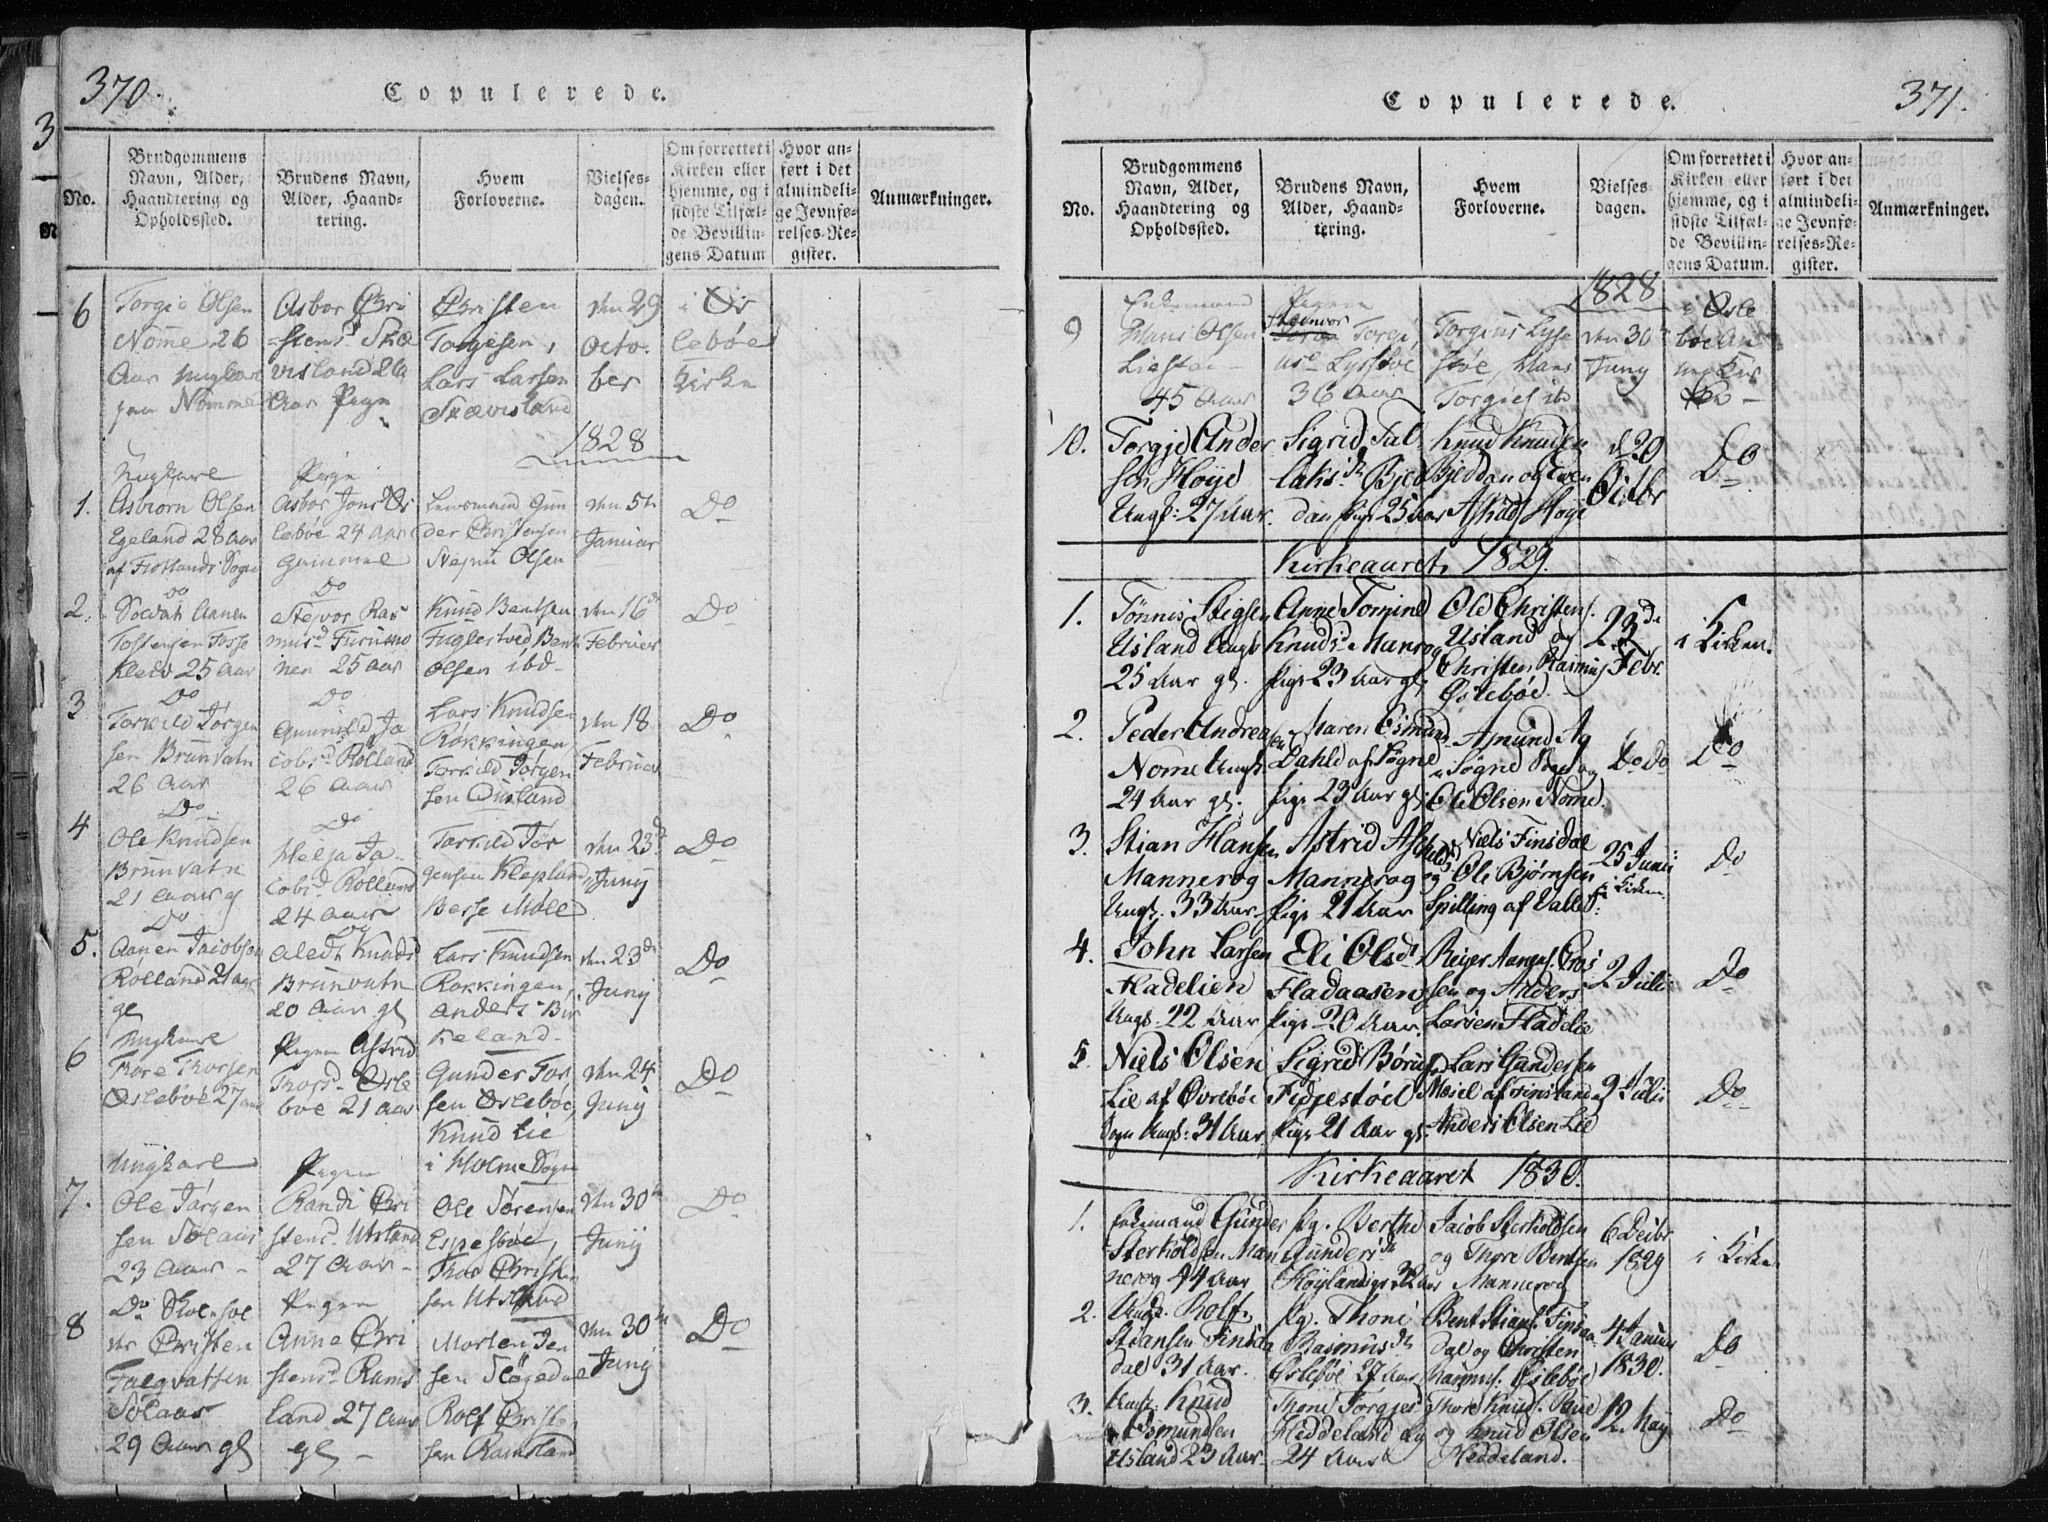 370.
Copulerede.
No.
Brudgommens
Navn, Alder,
Haandtering og
Opholdssted.
Brudens Navn,
Alder, Haand-
tering.
Hvem
Forloverne.
Vielses-
dagen.
Om forrettet i
Kirken eller
hjemme, og i
sidste Tilfæl-
de Bevillin-
gens Datum
Hvor an-
ført i det
almindeli-
ge Jevnfø-
relses-Re-
gister.
Anmærkninger.
6
Torgie Olsen
Nome 26
Aar Ungkar
paa Nomme
Asbor Chri
stens Skæ
visland 26
Aar Pige
Christen
Torgiesen,
Lars Larsen
Skævisland
den 29
Octo.
ber
i Øs
lebøe
Kirke
1828
1.
Ungkare
Asbiorn Olsen
Egeland 28 Aar
af Fiotlands Sogn
Pigen
Asbor Jons Øs
lebøe 24 Aar
gammel
Lensmand Gun
der Christensen
Olsen
den 5te
Januar
Do
2.
Do
Soldat Aanen
Tostensen Fosse
Kleiv 25 Aar
Do
Stevor Ras
musd Furumo
nen 25 Aar
Knud Bentsen
Fuglestved Bent
Olsen ibd
den 16de
Februer
Do
3
Do
Torkild Jørgen
sen Brunvatn
26 Aar
Do
Gunnild Ja
cobsd Rolland
26 Aar
Lars Knudsen
Rokkingen
Torkild Jørgen
sen
den 18
Februer
Do
4
Do
Ole Knudsen
Brunvatn
21 Aar gl
Do
Helja Ja-
cobsd Rolland
24 Aar
Torkild Jør
gensen Klepland
Berse Moll
den 23d
Junij
Do
5.
Do
Aanen Jacobsen
Rolland 21 Aar
gl
Do
Aledt Knuds
Brunvatn
20 Aar gl
Lars Knudsen
Rokkingen,
Anders Bir
keland
den 23de
Junij
Do
6
Ungkare
Tore Thorsen
Oslebøe 27 Aar
Pigen Astrid
Thorsd Osle
bøe 21 Aar
Gunder Tor
sen Oslebøe,
Knud Lie
i Holme Sogn
den 24
Junij
Do
7.
Ungkare
Ole Jørgen
sen Solaas
23 Aar
Pigen
Randi Chri
stensd Utsland
27 Aar
Ole Sørensen
Espesbøe,
Thor Christen
sen Utsland
den 30te
Junij
Do
8
Do Skolehol
der Christen
Falgvatsen
Solaas
29 Aar gl
Pigen
Anne Chri
stensd Rams
land 27 Aar
gl
Morten Jen
sen Skøgedal
Rolf Christen
sen Ramsland
den 30te
Junij
Do
371.
Copulerede.
No.
Brudgommens
Navn, Alder,
Haandtering og
Opholdssted.
Brudens Navn,
Alder, Haand-
tering.
Hvem
Forloverne.
Vielses-
dagen.
Om forrettet i
Kirken eller
hjemme, og i
sidste Tilfæl-
de Bevillin-
gens Datum.
Hvor an-
ført i det
almindeli-
ge Jevnfø-
relses-Re-
gister.
Anmærkninger.
1828
9
Enkemand
Hans Olsen
45 Aar
Pigen
Torgi
36 Aar
Torgius Lysse
støe, Hans
Torgies ibd
den 30te
Juny
i Osle
bøe
10.
Torgje Ander
sen Høye
Ungk: 27 Aar.
Sigrid Tal
laksdr Bjed
dan Pige 25 Aar
Knud Knudsen
Bjeddan og Even
Aslaks Høye
d 29
Octbr
Do
Kirkeaaret 1829.
1.
Tønnis Stigsen
Usland Ungk
25 Aar gl.
Anne Tomine
Knudsd Manrog
Pige 23 Aar gl.
Ole Christens.
Usland og
Christen Rasmus
Øslebøe
23de
Febr.
i Kirken.
2.
Peder Andrea
sen
Nome Ungk.
24 Aar gl.
Maren Osmund
Dahle af Søgne
Pige 23 Aar gl
Asmund Aa
i Søgne Sogn og
Ole Olsen Nome.
Do Do
Do
3.
Stian Hansen
Mannerog
Ungk. 33 Aar
Astrid Aslaksd
Mannerog
Pige 21 Aar
Niels Finsdal
og Ole Bjørnsen
Spilling af Valle S:
25 Junii
i Kirken
Do
4.
John Larsen
Fladelien
Ungk: 22 Aar
Eli Olsdr
Fladaasen
Pige 20 Aar.
Reier Aanens. Fros
sen og Anders
Larsen Fladelie
2 Julii
Do
5.
Niels Olsen
Lie af Øvrebøe
Sogn Ungk: 31 Aar
Sigrid Børuls
Fidjestøel
Pige 21 Aar gl.
Lars Gundersen
Mæsel af Finsland
Anders Olsen Lie
9 Julii
Do
Kirkeaaret 1830.
1.
Enkemand Gunder
Sterkolsen Man
nerog 44 Aar
Pg. Berthe
Gundersdr
Høyland Pige 32 Aar
Jacob Sterkolsen
og Thore Bentsen
Mannerog
6 Decbr
1829
i Kirken
2.
Ungk. Rolf
Stiansen Finsda
dal 31 Aar.
Pg. Thone
Rasmusdr
Øslebøe 27 Aar
Bent Stians. Finsda
dal og Christen
Rasmus. Øslebøe
4 Januar
1830.
Do
3.
Ungk: Knud
Osmundsen
Usland 23 Aar
Thone Torgjes
Heddeland Pg
24 Aar
Thore Knuds.
og Knud Olsen
Heddeland.
12 May
Do